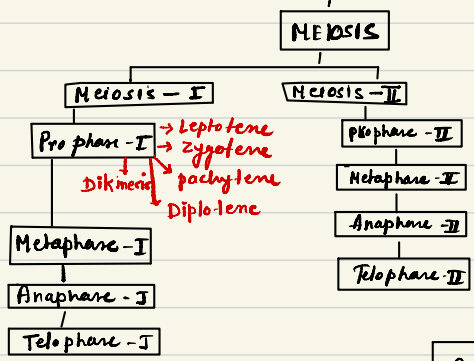 MEIOSIS
Meiosis - I
Meiosis - II
Prophase - I
→ Leptotene
→ Zygotene
pachylene
Diplolene
Dikinesis
Metaphase - I
Anaphase - I
Telophase - I
Prophase - II
Metaphase - II
Anaphase - II
Telophase - II